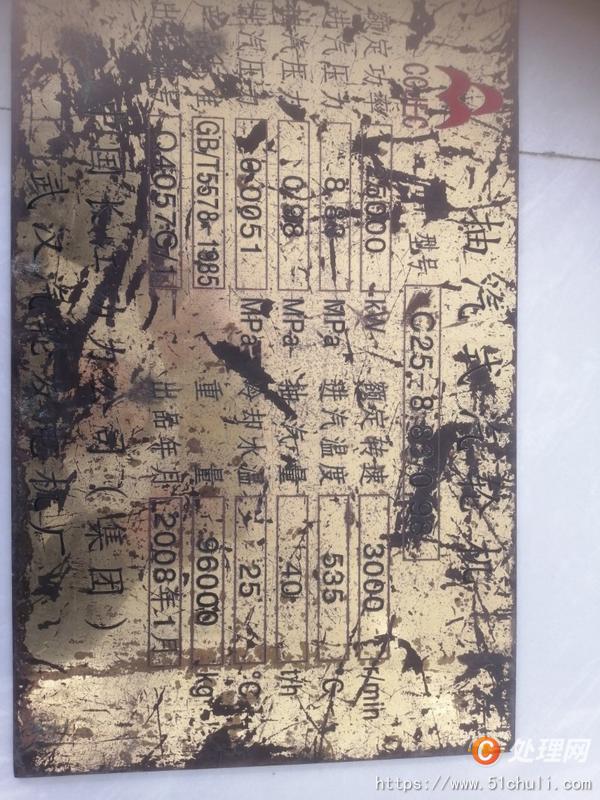 抽汽式汽轮机
CCHEC
型号 C25-8.83/0.98
额定功率 25000 KW 额定转速 3000 r/min
进汽压力 8.83 MPa 进汽温度 535 °C
抽汽压力 0.98 MPa 抽汽量 40 t/h
排汽压力 0.0051 MPa 冷却水温 25 °C
GB/T5578-1985 重量 96000 kg
Q4057C/1 出品年月 2008年1月
中国长江动力公司(集团)
武汉汽轮发电机厂
C处理网
https://www.51chuli.com/